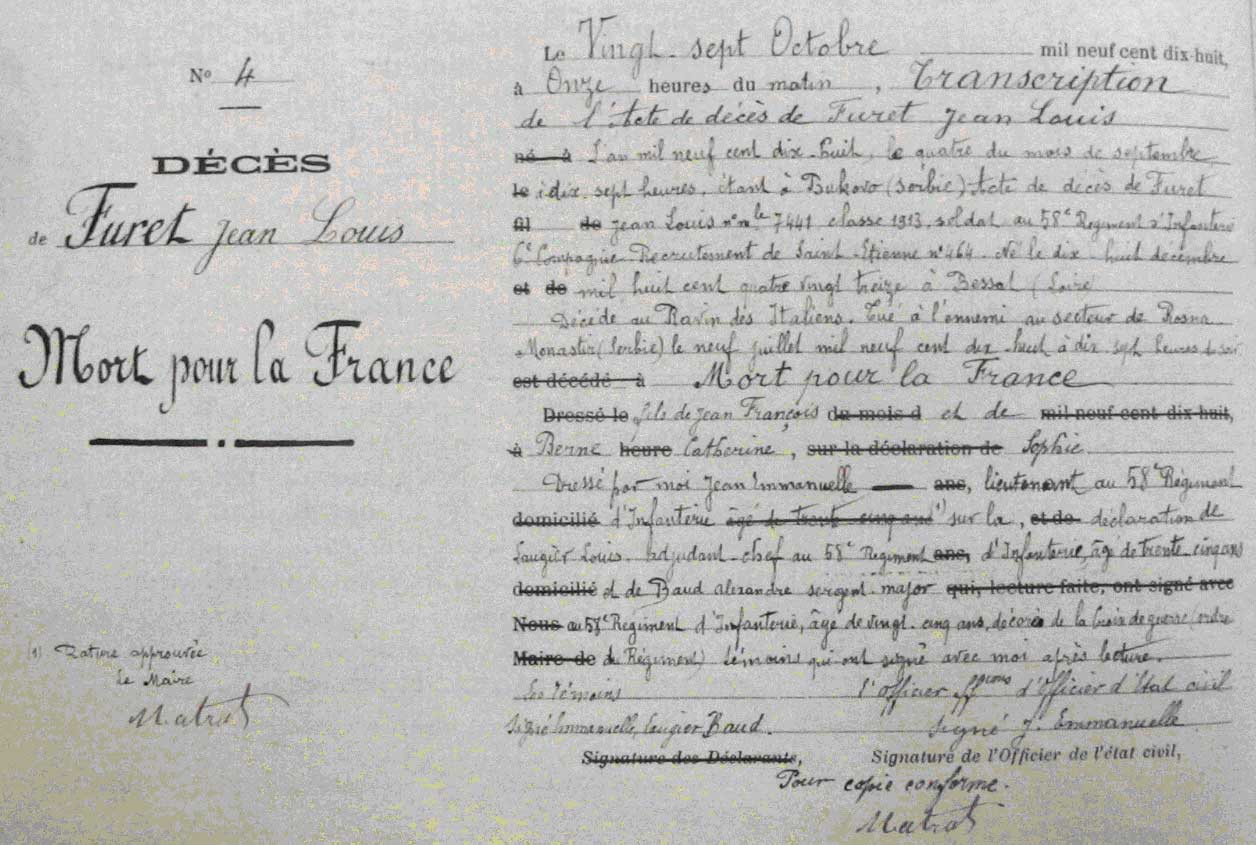 N° 4
DÉCÈS
de Furet Jean Louis
Mort pour la France
(1) Rature approuvée
Le Maire
Matrat
Le Vingt-sept Octobre mil neuf cent dix-huit,
à Onze heures du matin, Transcription
de l'Acte de décès de Furet Jean Louis
né à L'an mil neuf cent dix-huit, le quatre du mois de septembre
le à dix-sept heures, étant à Bukovo (Serbie) Acte de décès de Furet
fil de Jean Louis n° mle 7441 classe 1913, soldat au 58e Régiment d'Infanterie
6e Compagnie Recrutement de Saint-Etienne n° 464. Né le dix-huit décembre
et de mil huit cent quatre vingt treize à Bessat (Loire)
Décédé au Ravin des Italiens. Tué à l'ennemi au secteur de Rosna
Monastir (Serbie) le neuf juillet mil neuf cent dix-huit à dix sept heures du soir
est décédé à Mort pour la France
Dressé le fils de Jean François du mois d et de mil neuf cent dix-huit,
à Berne heure Catherine, sur la déclaration de Sophie
Dressé par moi Jean Emmanuelle ans, lieutenant au 58e Régiment
domicilié d'Infanterie âgé de trente cinq ans (1) sur la, et de déclaration de
Laugier Louis. adjudant-chef au 58e Régiment ans, d'Infanterie, âgé de trente-cinq ans
domicilié et de Baud alexandre sergent-major qui, lecture faite, ont signé avec
Nous au 58e Régiment d'Infanterie, âgé de vingt-cinq ans, décoré de la Croix de guerre (ordre
Maire de du Régiment) témoins qui ont signé avec moi après lecture.
Les témoins l'Officier ffions d'Officier d'Etat civil
Signé Emmanuelle, Laugier Baud. Signé J. Emmanuelle
Signature des Déclarants, Signature de l'Officier de l'état civil,
Pour copie conforme.
Matrat